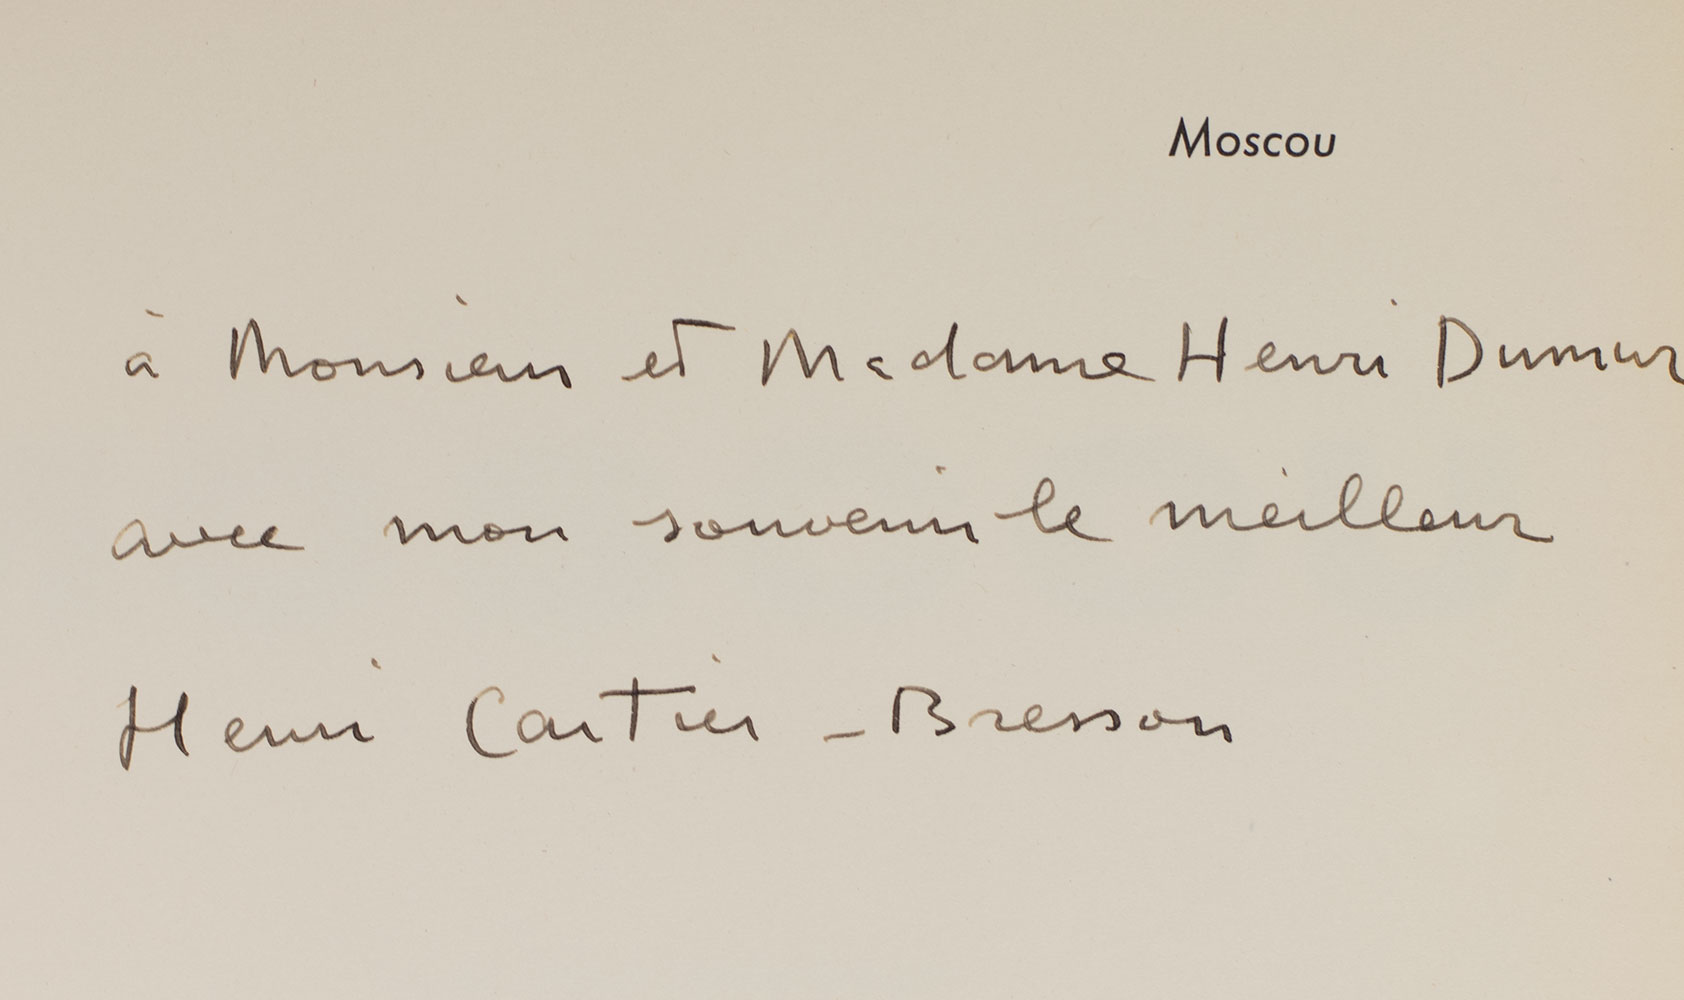 Moscou
à Monsieur et Madame Henri Dumur
avec mon souvenir le meilleur
Henri Cartier-Bresson